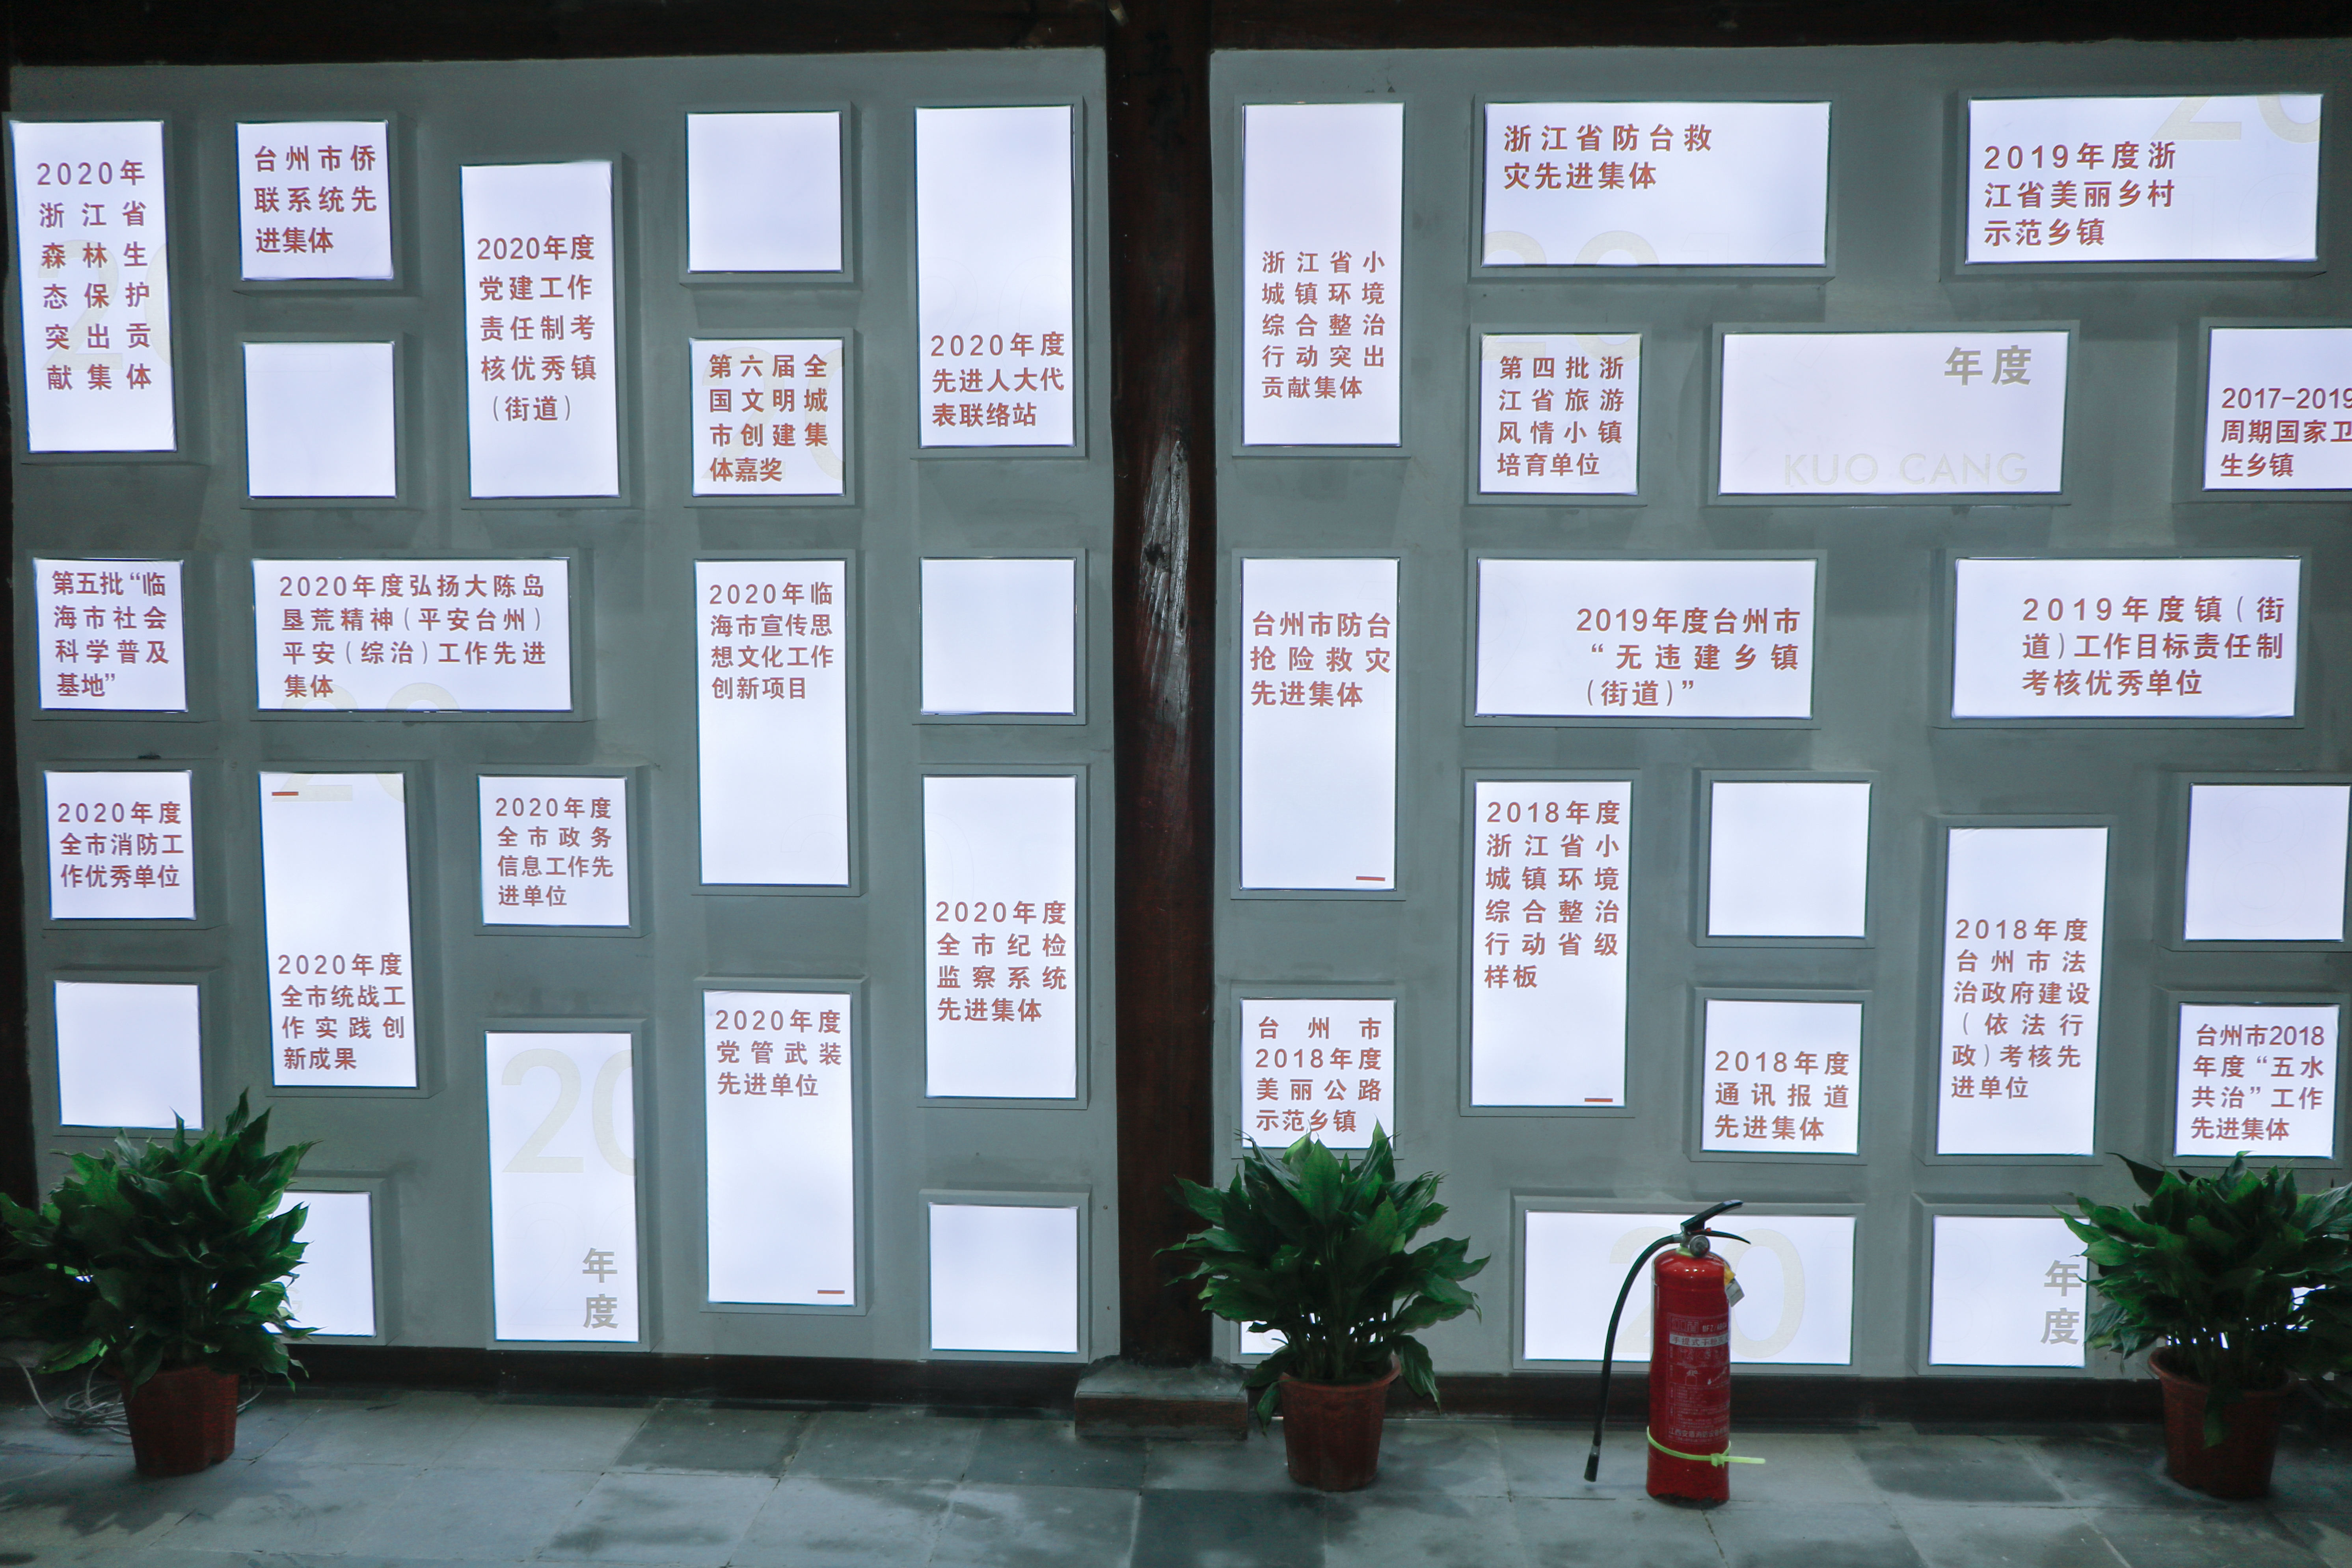 2020年
浙江省
森林生
态保护
突出贡
献集体
台州市侨
联系统先
进集体
2020年度
党建工作
责任制考
核优秀镇
（街道）
第六届全
国文明城
市创建集
体嘉奖
2020年度
先进人大代
表联络站
第五批“临
海市社会
科学普及
基地”
2020年度弘扬大陈岛
垦荒精神（平安台州）
平安（综治）工作先进
集体
2020年临
海市宣传思
想文化工作
创新项目
2020年度
全市消防工
作优秀单位
2020年度
全市统战工
作实践创
新成果
2020年度
全市政务
信息工作先
进单位
2020年度
全市纪检
监察系统
先进集体
20
年
度
2020年度
党管武装
先进单位
浙江省小
城镇环境
综合整治
行动突出
贡献集体
浙江省防台救
灾先进集体
2019年度浙
江省美丽乡村
示范乡镇
第四批浙
江省旅游
风情小镇
培育单位
年度
KUO CANG
2017-2019
周期国家卫
生乡镇
台州市防台
抢险救灾
先进集体
2019年度台州市
“无违建乡镇
（街道）”
2019年度镇（街
道）工作目标责任制
考核优秀单位
2018年度
浙江省小
城镇环境
综合整治
行动省级
样板
台州市
2018年度
美丽公路
示范乡镇
2018年度
通讯报道
先进集体
2018年度
台州市法
治政府建设
（依法行
政）考核先
进单位
台州市2018
年度“五水
共治”工作
先进集体
20
年
度